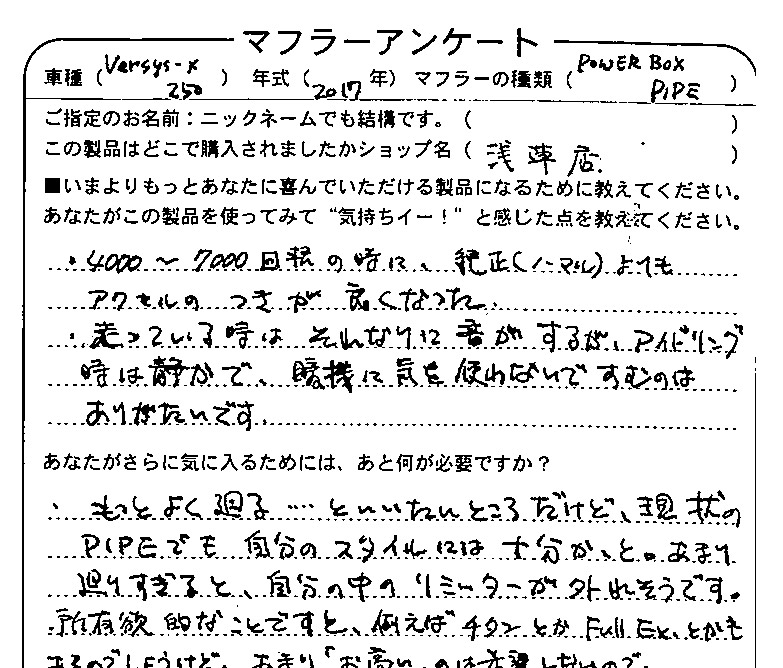 マフラーアンケート
車種（Versys-x 250） 年式（2017年） マフラーの種類（POWER BOX PIPE）
ご指定のお名前：ニックネームでも結構です。（ ）
この製品はどこで購入されましたかショップ名（浅草店）
■いまよりもっとあなたに喜んでいただける製品になるために教えてください。
あなたがこの製品を使ってみて“気持ちイー！”と感じた点を教えてください。
・4000～7000回転の時に、純正(ノーマル)よりも
アクセルのつきが良くなった。
・走っている時はそれなりに音がするが、アイドリング
時は静かで、暖機に気を使わないですむのは
ありがたいです。
あなたがさらに気に入るためには、あと何が必要ですか？
・もっとよく廻る…といいたいところだけど、現状の
PIPEでも自分のスタイルには十分か、と。あまり
廻りすぎると、自分の中のリミッターが外れそうです。
所有欲的なことですと、例えばチタンとかFull Ex.とかも
あるのでしょうけど、あまり「お高い」のは希望しないので